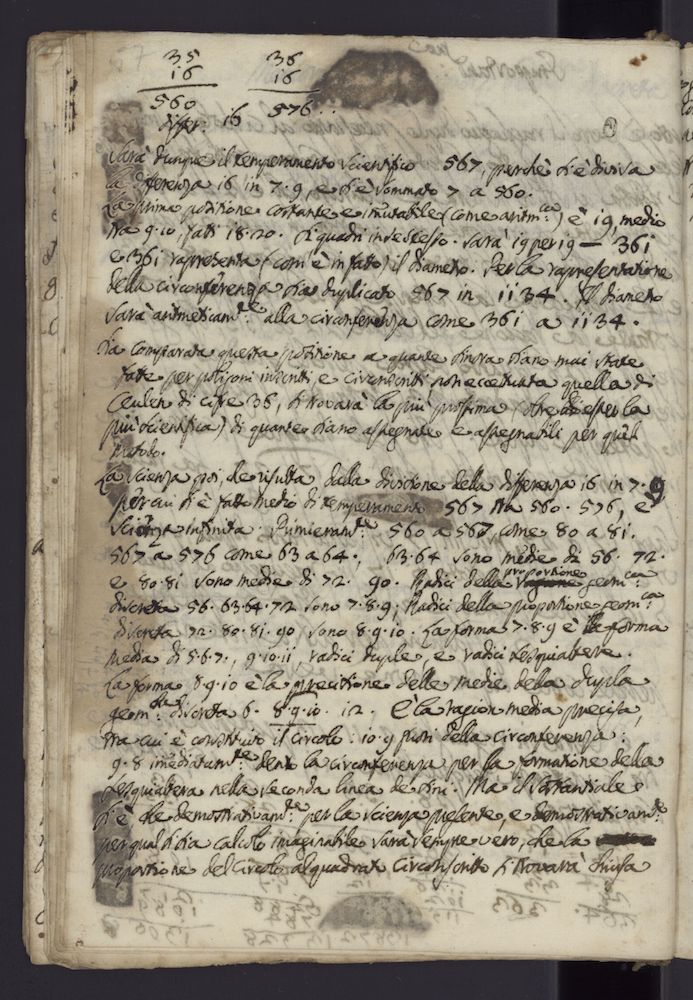 35 36
16 16
560 576
differ. 16
Sarà dunque il temperamento scientifico 567, perchè si è divisa
la differenza 16 in 7. 9, e si è sommato 7 a 560.
La prima positione costante e imutabile (come aritm.ca) è 19, medio
tra 9. 10, fatti 18. 20. Si quadri in se stesso. Sarà 19 per 19 — 361
e 361 rapresenta (com'è in fatto) il diametro. Per la rapresentatione
della circonferenza sia duplicato 567 in 1134. Il diametro
sarà aritmeticam.te alla circonferenza come 361 a 1134.
Sia comparata questa positione a quante sinora siano mai state
fatte per poligoni inscritti, e circonscritti non eccettuata quella di
Ceulen di cifre 36, si trovarà la più prossima (oltre di esser la
più scientifica) di quante siano assegnate e assegnabili per quel
metodo.
La scienza poi, che risulta dalla divisione della differenza 16 in 7. 9
per cui si è fatto medio di temperamento 567 tra 560. 576, è
scienza infinita. Primieram.te 560 a 567, come 80 a 81.
567 a 576 come 63 a 64. 63. 64 sono medie di 56. 72.
e 80. 81 sono medie di 72. 90. Radici della proportione geom.ca
discreta 56. 63. 64. 72 sono 7. 8. 9. Radici della proportione geom.ca
discreta 72. 80. 81. 90 sono 8. 9. 10. La forma 7. 8. 9 è la forma
media di 5. 6. 7., 9. 10. 11, radici duple, e radici sesquialtere.
La forma 8. 9. 10 è la precisione delle medie della dupla
geom.ca discreta 6. 8. 9. 10. 12. È la ragion media precisa,
tra cui è costituito il circolo: 10. 9 fuori della circonferenza:
9. 8 imediatam.te dentro la circonferenza per la formatione della
sesquialtera nella seconda linea de sini. Ma il sostantiale
si è che demostrativam.te per la scienza presente, e demostrativam.te
per qual si sia calcolo imaginabile sarà sempre vero, che la
proportione del circolo al quadrato circonscritto si trovarà chiusa